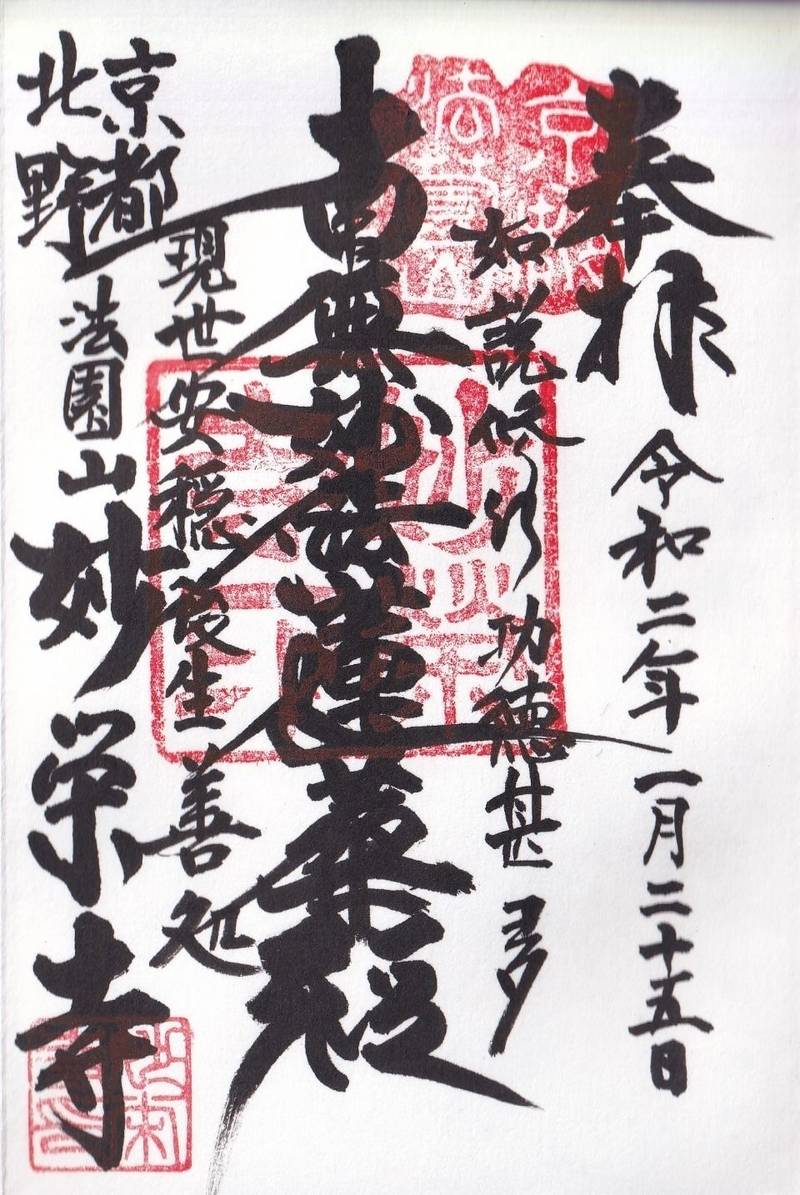 奉拝
令和二年一月二十五日
如説修行功徳甚多
南無妙法蓮華経
現世安穏後生善処
京都
北野
法園山
妙栄寺